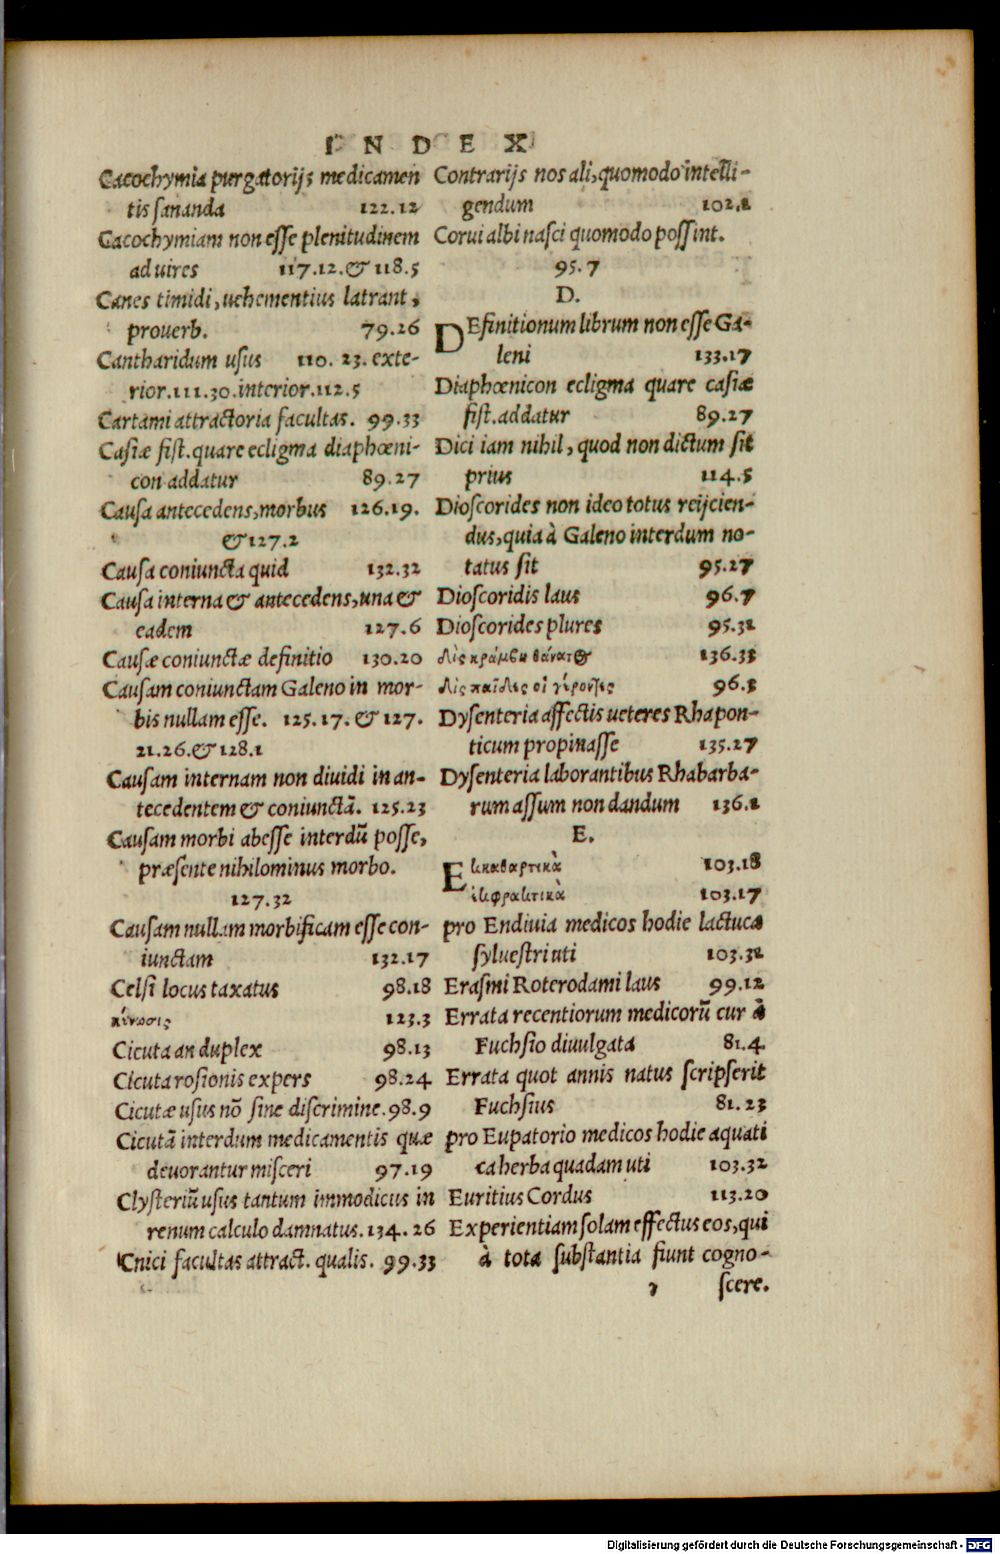 INDEX
Cacochymia purgatorijs medicamen
tis sananda 122.12
Cacochymiam non esse plenitudinem
ad uires 117.12.& 118.5
Canes timidi, uehementius latrant,
prouerb. 79.26
Cantharidum usus 110. 23. exte-
rior.111.30.interior.112.5
Cartami attractoria facultas. 99.33
Casiæ fist.quare ecligma diaphœni-
con addatur 89.27
Causa antecedens, morbus 126.19.
& 127.2
Causa coniuncta quid 132.32
Causa interna & antecedens, una &
eadem 127.6
Causæ coniunctæ definitio 130.20
Causam coniunctam Galeno in mor-
bis nullam esse. 125.17. & 127.
21.26.& 128.1
Causam internam non diuidi in an-
tecedentem & coniunctã. 125.23
Causam morbi abesse interdũ posse,
præsente nihilominus morbo.
127.32
Causam nullam morbificam esse con-
iunctam 132.17
Celsi locus taxatus 98.18
κένωσις 123.3
Cicuta an duplex 98.13
Cicuta rosionis expers 98.24
Cicutæ usus nõ sine discrimine. 98.9
Cicutã interdum medicamentis quæ
deuorantur misceri 97.19
Clysteriũ usus tantum immodicus in
renum calculo damnatus. 134. 26
Cnici facultas attract. qualis. 99.33
Contrarijs nos ali, quomodo intelli-
gendum 102.1
Corui albi nasci quomodo possint.
95.7
D.
DEfinitionum librum non esse Ga-
leni 133.17
Diaphœnicon ecligma quare casiæ
fist. addatur 89.27
Dici iam nihil, quod non dictum sit
prius 114.5
Dioscorides non ideo totus reijcien-
dus, quia à Galeno interdum no-
tatus sit 95.27
Dioscoridis laus 96.7
Dioscorides plures 95.32
Δὶς κράμβη θάνατος 136.33
Δὶς παῖδες οἱ γέροντες 96.1
Dysenteria affectis ueteres Rhapon-
ticum propinasse 135.27
Dysenteria laborantibus Rhabarba-
rum assum non dandum 136.1
E.
Εκκαθαρτικὰ 103.18
ἐκφρακτικὰ 103.17
pro Endiuia medicos hodie lactuca
syluestri uti 103.32
Erasmi Roterodami laus 99.12
Errata recentiorum medicorũ cur à
Fuchsio diuulgata 81.4
Errata quot annis natus scripserit
Fuchsius 81.23
pro Eupatorio medicos hodie aquati
ca herba quadam uti 103.32
Euritius Cordus 113.20
Experientiam solam effectus eos, qui
à tota substantia fiunt cogno-
scere.
Digitalisierung gefördert durch die Deutsche Forschungsgemeinschaft - DFG